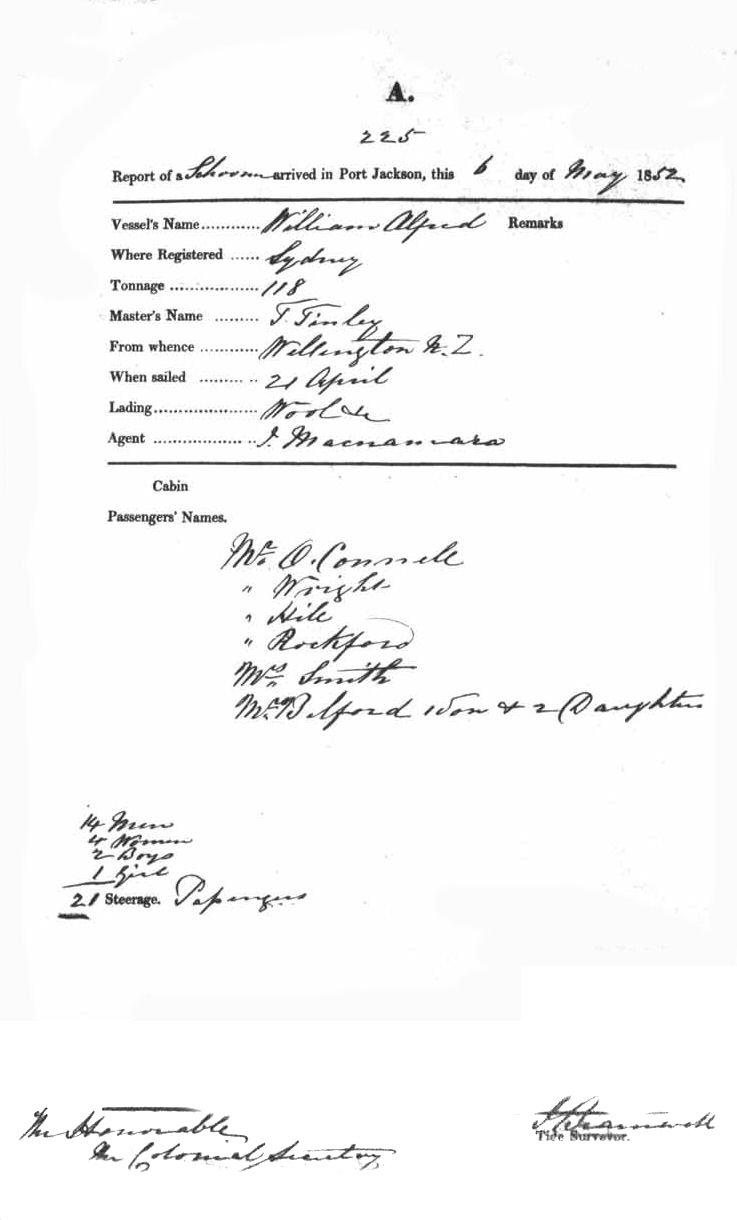 A.
225
Report of a Schooner arrived in Port Jackson, this 6 day of May 1852
Vessel's Name............ William Alfred Remarks
Where Registered ...... Sydney
Tonnage .................. 118
Master's Name ......... T. Tinley
From whence ............ Wellington N.Z.
When sailed ......... .. 21 April
Lading..................... Wool &c
Agent .................. .. J. Macnamara
Cabin
Passengers' Names.
Mr. O. Connell
" Wright
" Hile
" Rockford
Mrs Smith
Mrs Bilford 1 Son & 2 Daughters
14 Men
4 Women
2 Boys
1 Girl
21 Steerage. Passengers
The Honorable
The Colonial Secretary
Tide Surveyor.